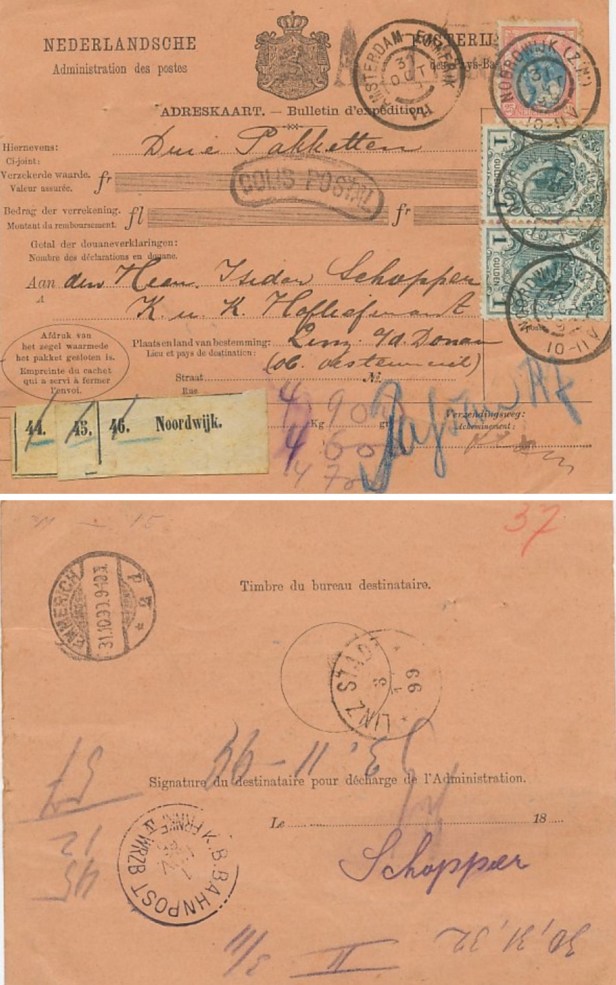 NEDERLANDSCHE
Administration des postes
ADRESKAART. — Bulletin d'expédition.
AMSTERDAM EMMERIK
31
OCT
II
NOORDWIJK (Z.H.)
31
Hiernevens:
Ci-joint:
Drie Pakketten
Verzekerde waarde.
Valeur assurée.
fr
COLIS-POSTAL
Bedrag der verrekening.
Montant du remboursement.
fl
fr
Getal der douaneverklaringen:
Nombre des déclarations en douane.
1
GULDEN
1
GULDEN
Aan den Heer Isidor Schopper
A
K. u. K. Hoflieferant
Plaats en land van bestemming:
Lieu et pays de destination:
Linz a/d Donau
(ob. oesterreich)
Straat
Rue
No.
Afdruk van
het zegel waarmede
het pakket gesloten is.
Empreinte du cachet
qui a servi à fermer
l'envoi.
Verzendingsweg:
Acheminement:
Kg
gr
4 90
4 60
4 70
44.
45.
46. Noordwijk.
37
EMMERICH
31.10.99.9-10
Timbre du bureau destinataire.
LINZ STADT
99
3. 11 - 99
Signature du destinataire pour décharge de l'Administration.
Le
18
Schopper
K.B.BAHNPOST
WRZB
37
12
45
30, 31, 32
II
3/11